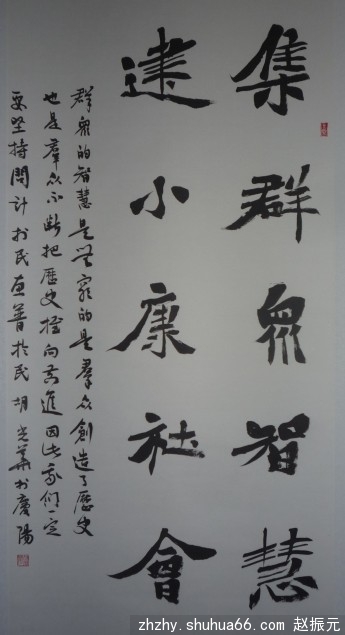 集群眾智慧
建小康社會
群眾的智慧是無窮的是羣众創造了歷史
也是羣众不断把歷史推向前進因此我們一定
要坚持問計於民直普於民胡光華於慶陽
zhzhy.shuhua66.com 赵振元